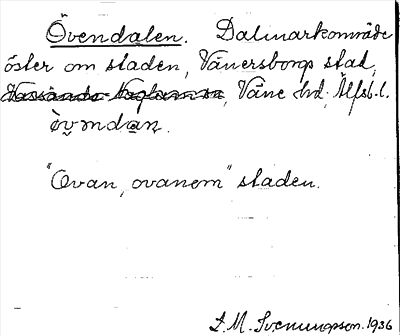 Övendalen. Dalmarkområde
öster om staden, Vänersborgs stad,
Väne hd. Älfsb. l.
"Ovan, ovanem" staden.
S. M. Svenungsson. 1936